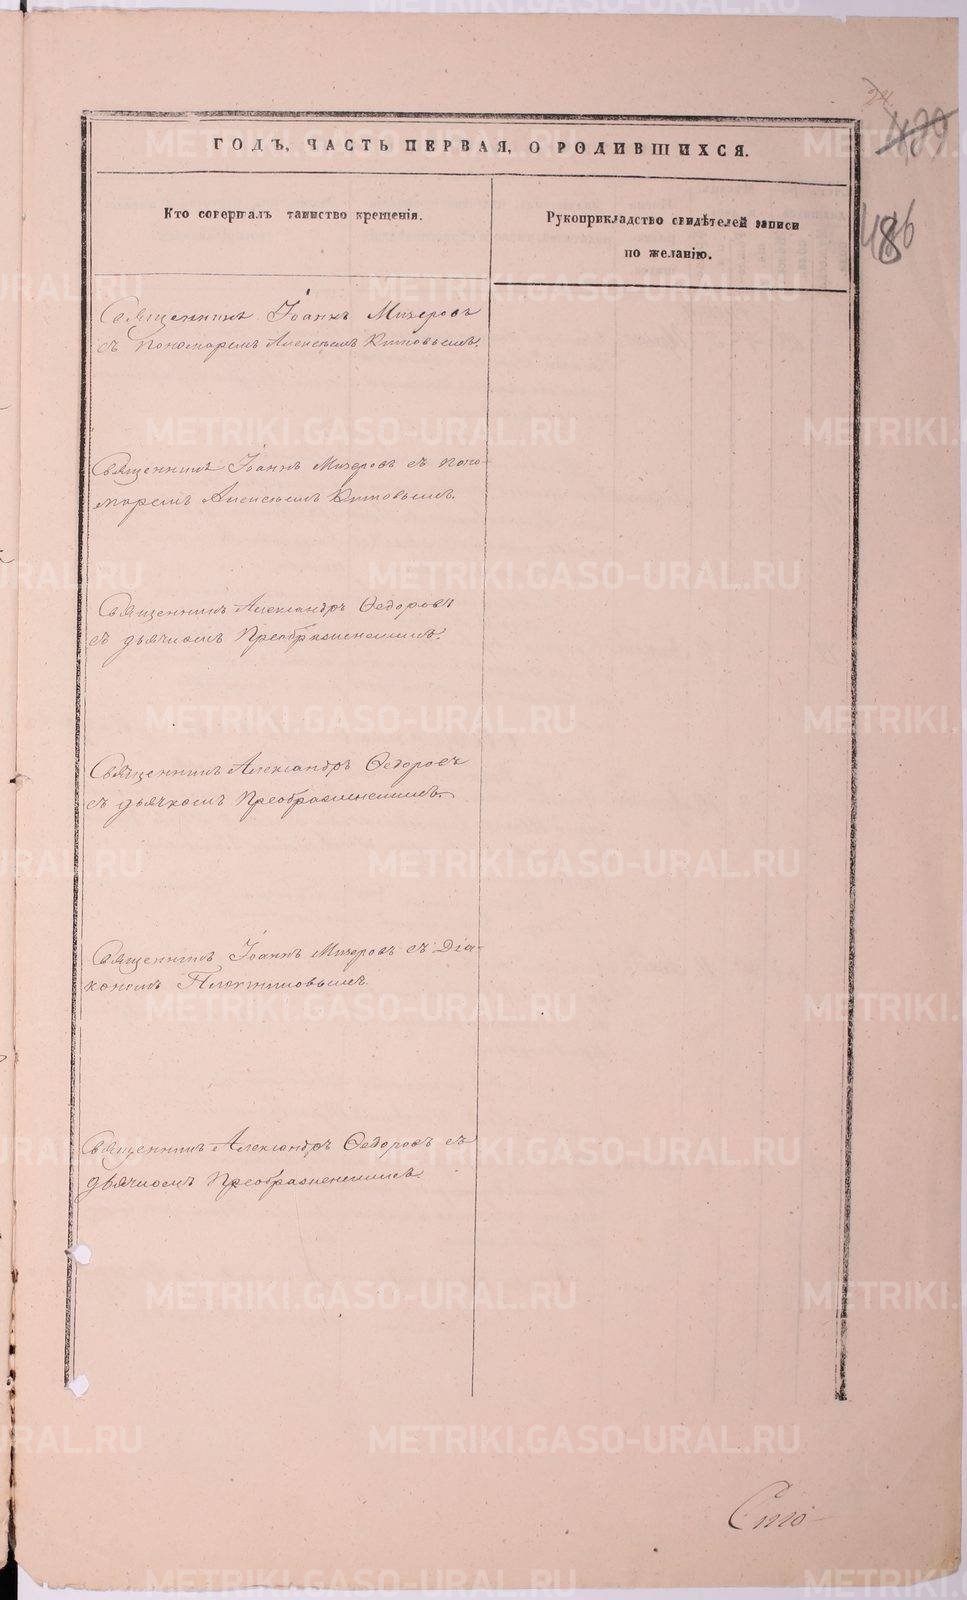 ГОДЪ, ЧАСТЬ ПЕРВАЯ, О РОДИВШИХСЯ.
Кто совершалъ таинство крещенія.
Рукоприкладство свидѣтелей записи
по желанію.
486
Священникъ Іоаннъ Мичеровъ
съ пономаремъ Алексѣемъ Китовымъ.
Священникъ Іоаннъ Мичеровъ съ поно-
маремъ Алексѣемъ Китовымъ.
Священникъ Александръ Ѳедоровъ
съ дьячкомъ Преображенскимъ.
Священникъ Александръ Ѳедоровъ
съ дьячкомъ Преображенскимъ.
Священникъ Іоаннъ Мичеровъ съ Діа-
кономъ
Священникъ Александръ Ѳедоровъ съ
дьячкомъ Преображенскимъ.
METRIKI.GASO-URAL.RU